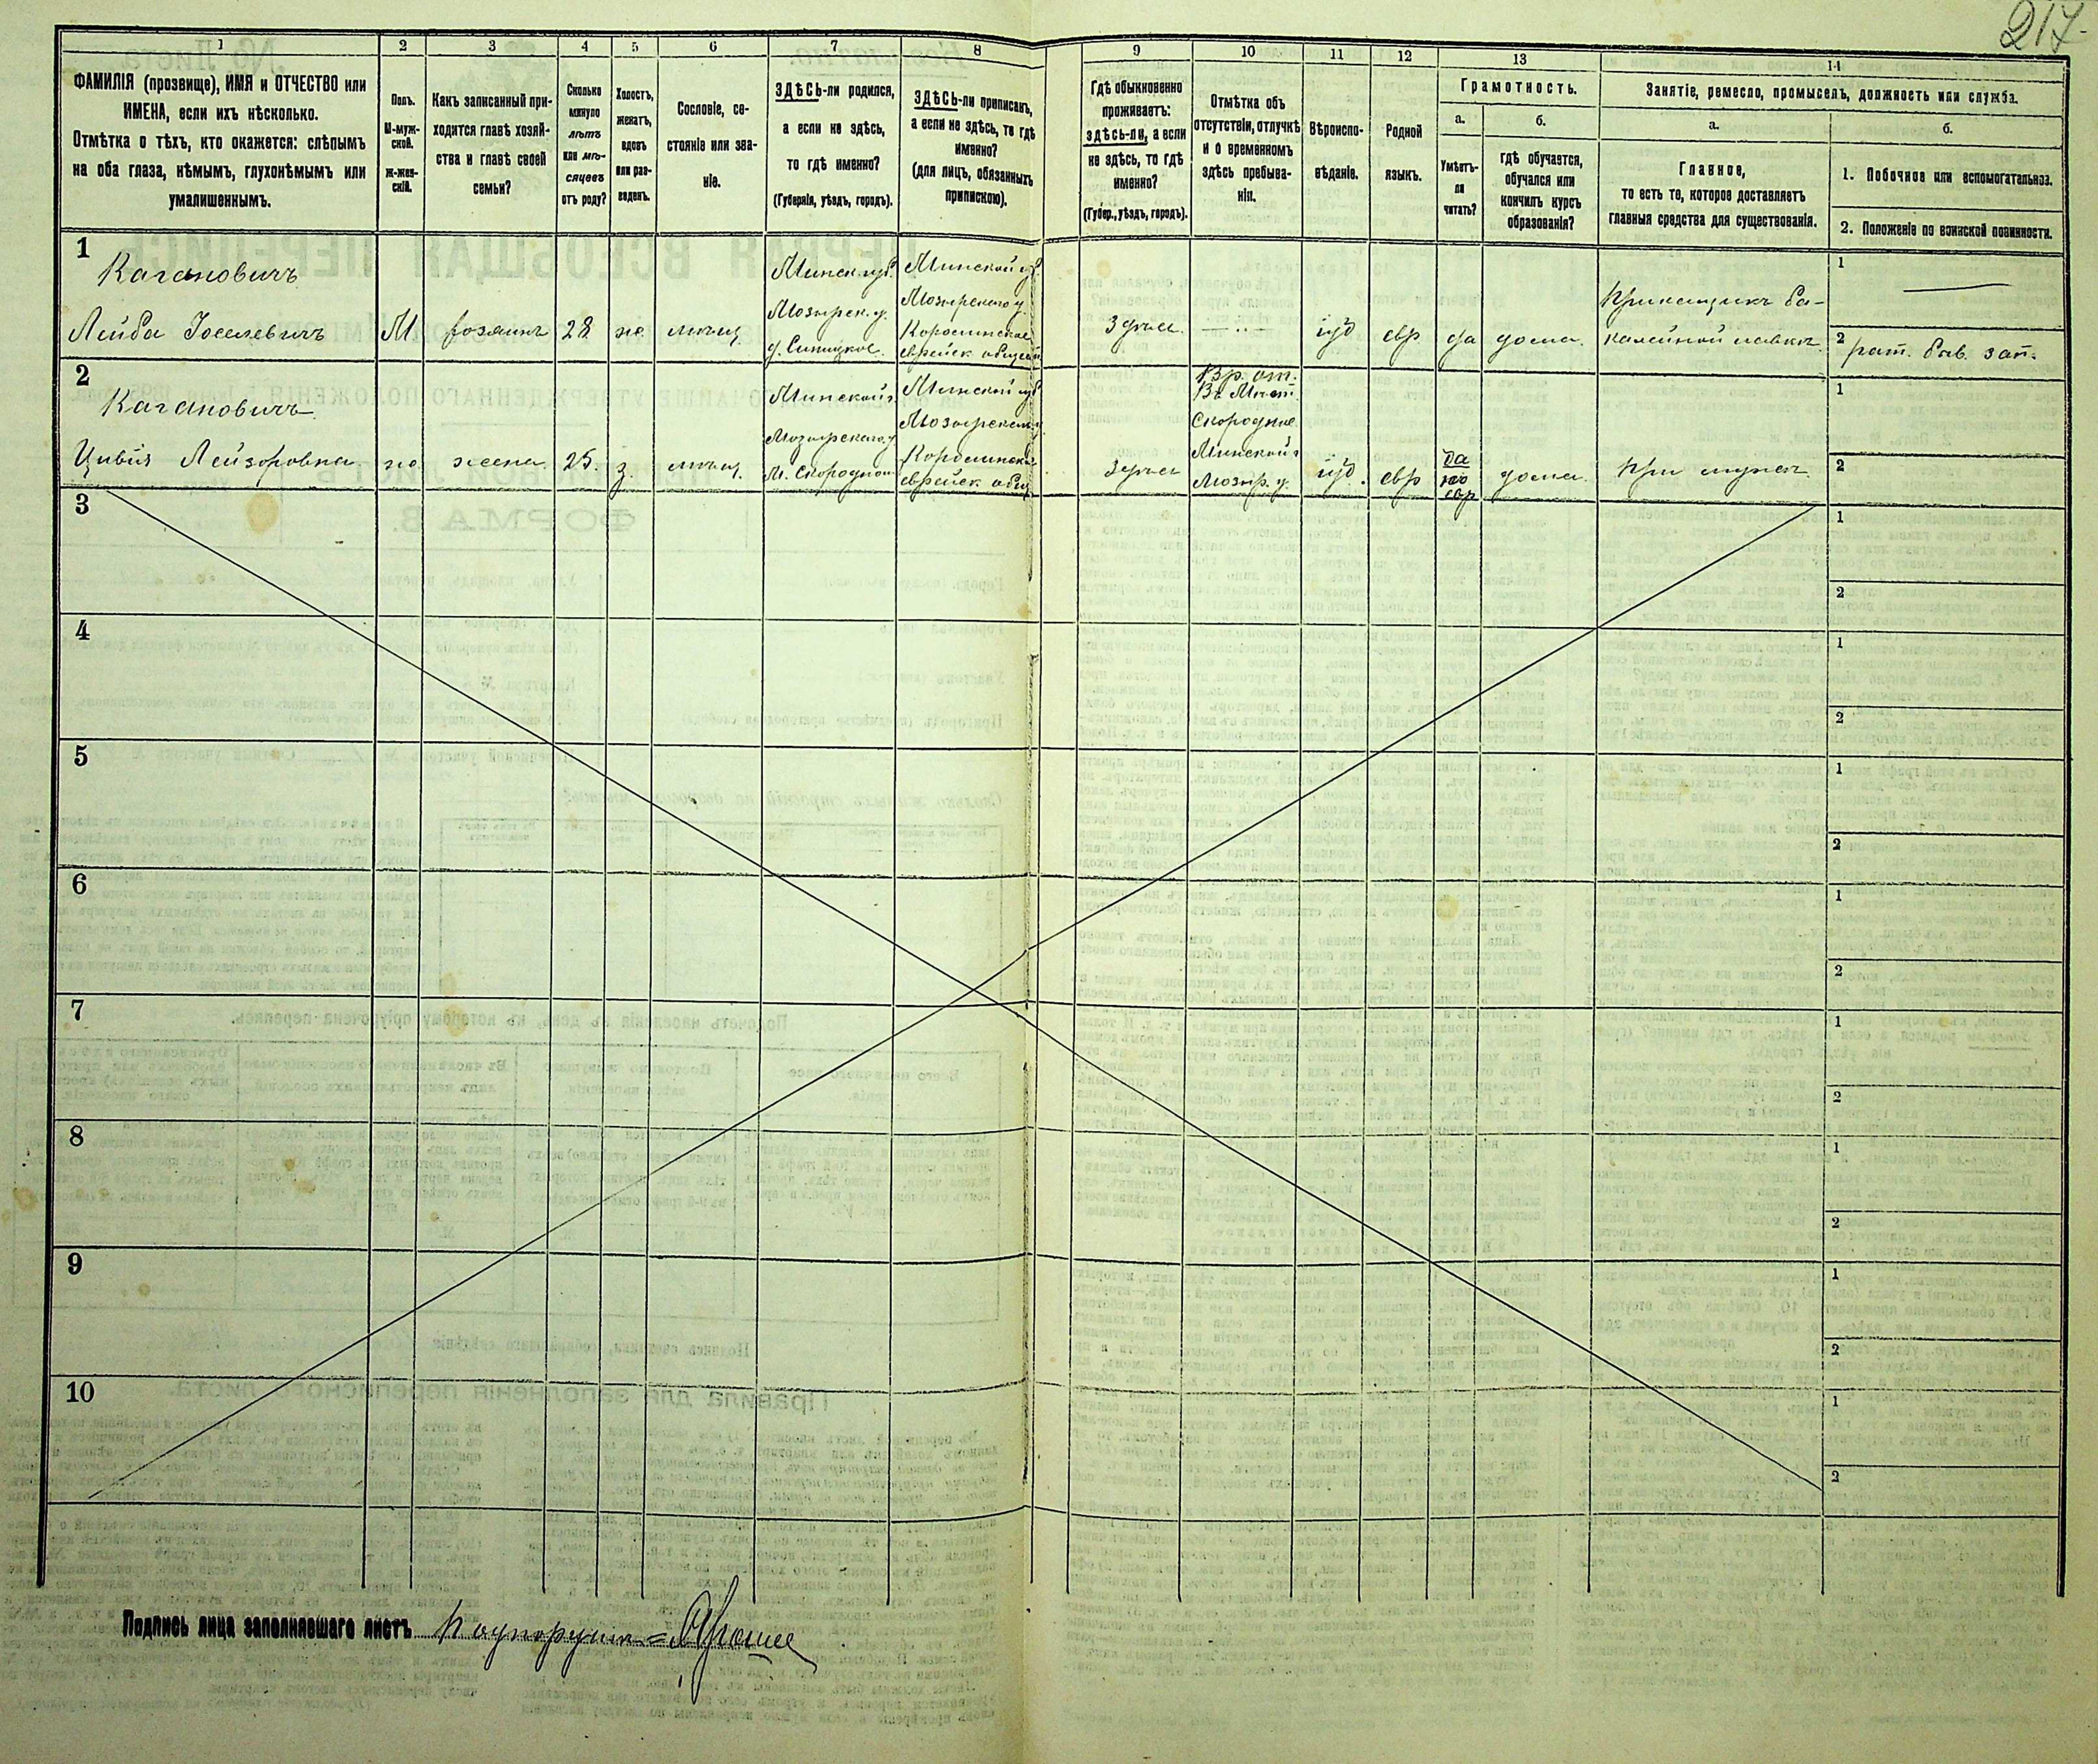 217.
1 2 3 4 5 6 7 8 9 10 11 12 13 14
ФАМИЛІЯ (прозвище), ИМЯ и ОТЧЕСТВО или
ИМЕНА, если ихъ нѣсколько.
Отмѣтка о тѣхъ, кто окажется: слѣпымъ
на оба глаза, нѣмымъ, глухонѣмымъ или
умалишеннымъ.
Полъ.
М-муж-
ской.
Ж-жен-
скій.
Какъ записанный при-
ходится главѣ хозяй-
ства и главѣ своей
семьи?
Сколько
минуло
лѣтъ
или мѣ-
сяцевъ
отъ роду?
Холостъ,
женатъ,
вдовъ
или раз-
веденъ.
Сословіе, со-
стояніе или зва-
ніе.
ЗДѢСЬ-ли родился,
а если не здѣсь,
то гдѣ именно?
(Губернія, уѣздъ, городъ).
ЗДѢСЬ-ли приписанъ,
а если не здѣсь, то гдѣ
именно?
(для лицъ, обязанныхъ
припискою).
Гдѣ обыкновенно
проживаетъ:
здѣсь-ли, а если
не здѣсь, то гдѣ
именно?
(Губер., уѣздъ, городъ).
Отмѣтка объ
отсутствіи, отлучкѣ
и о временномъ
здѣсь пребыва-
ніи.
Вѣроиспо-
вѣданіе.
Родной
языкъ.
Грамотность.
а.
Умѣетъ-
ли
читать?
б.
Гдѣ обучается,
обучался или
кончилъ курсъ
образованія?
Занятіе, ремесло, промыселъ, должность или служба.
а.
Главное,
то есть то, которое доставляетъ
главныя средства для существованія.
б.
1. Побочное или вспомогательное.
2. Положеніе по воинской повинности.
1
Кагановичъ
Лейба Іоселевичъ
М.
хозяинъ
28
же.
мѣщ.
Минск. губ.
Мозырск. у.
д. Синицкое.
Минской губ.
Мозырскаго у.
еврейск.
Здѣсь.
іуд
евр
да
дома.
Прикащикъ ба-
калейной лавки
1
2 рат.
2
Кагановичъ
Цивія Лейзоровна
же.
жена
25.
з.
мѣщ.
Минской г.
Мозырскаго у.
М. Скородное
Минской губ.
Мозырскаго у.
еврейск. общ.
Здѣсь
Вр. от.
Скородное
Минской г.
Мозыр. у.
іуд.
евр
да
по
евр
дома.
При мужѣ
1
2
3
1
2
4
1
2
5
1
2
6
1
2
7
1
2
8
1
2
9
1
2
10
1
2
Подпись лица заполнявшаго листъ